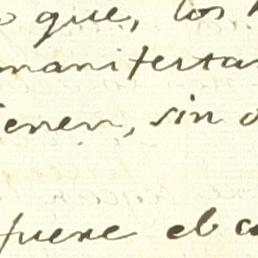 que, los
manifesta
enen, sin
fuere el